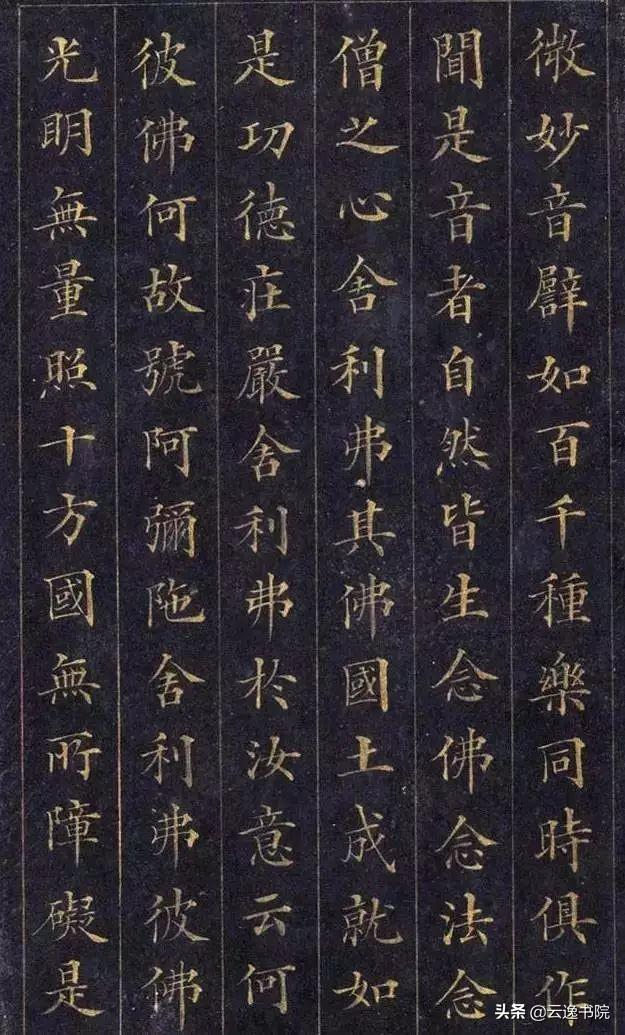 微妙音譬如百千種樂同時俱作
聞是音者自然皆生念佛念法念
僧之心舍利弗其佛國土成就如
是功德莊嚴舍利弗於汝意云何
彼佛何故號阿彌陁舍利弗彼佛
光明無量照十方國無所障礙是
头条 @云逸书院